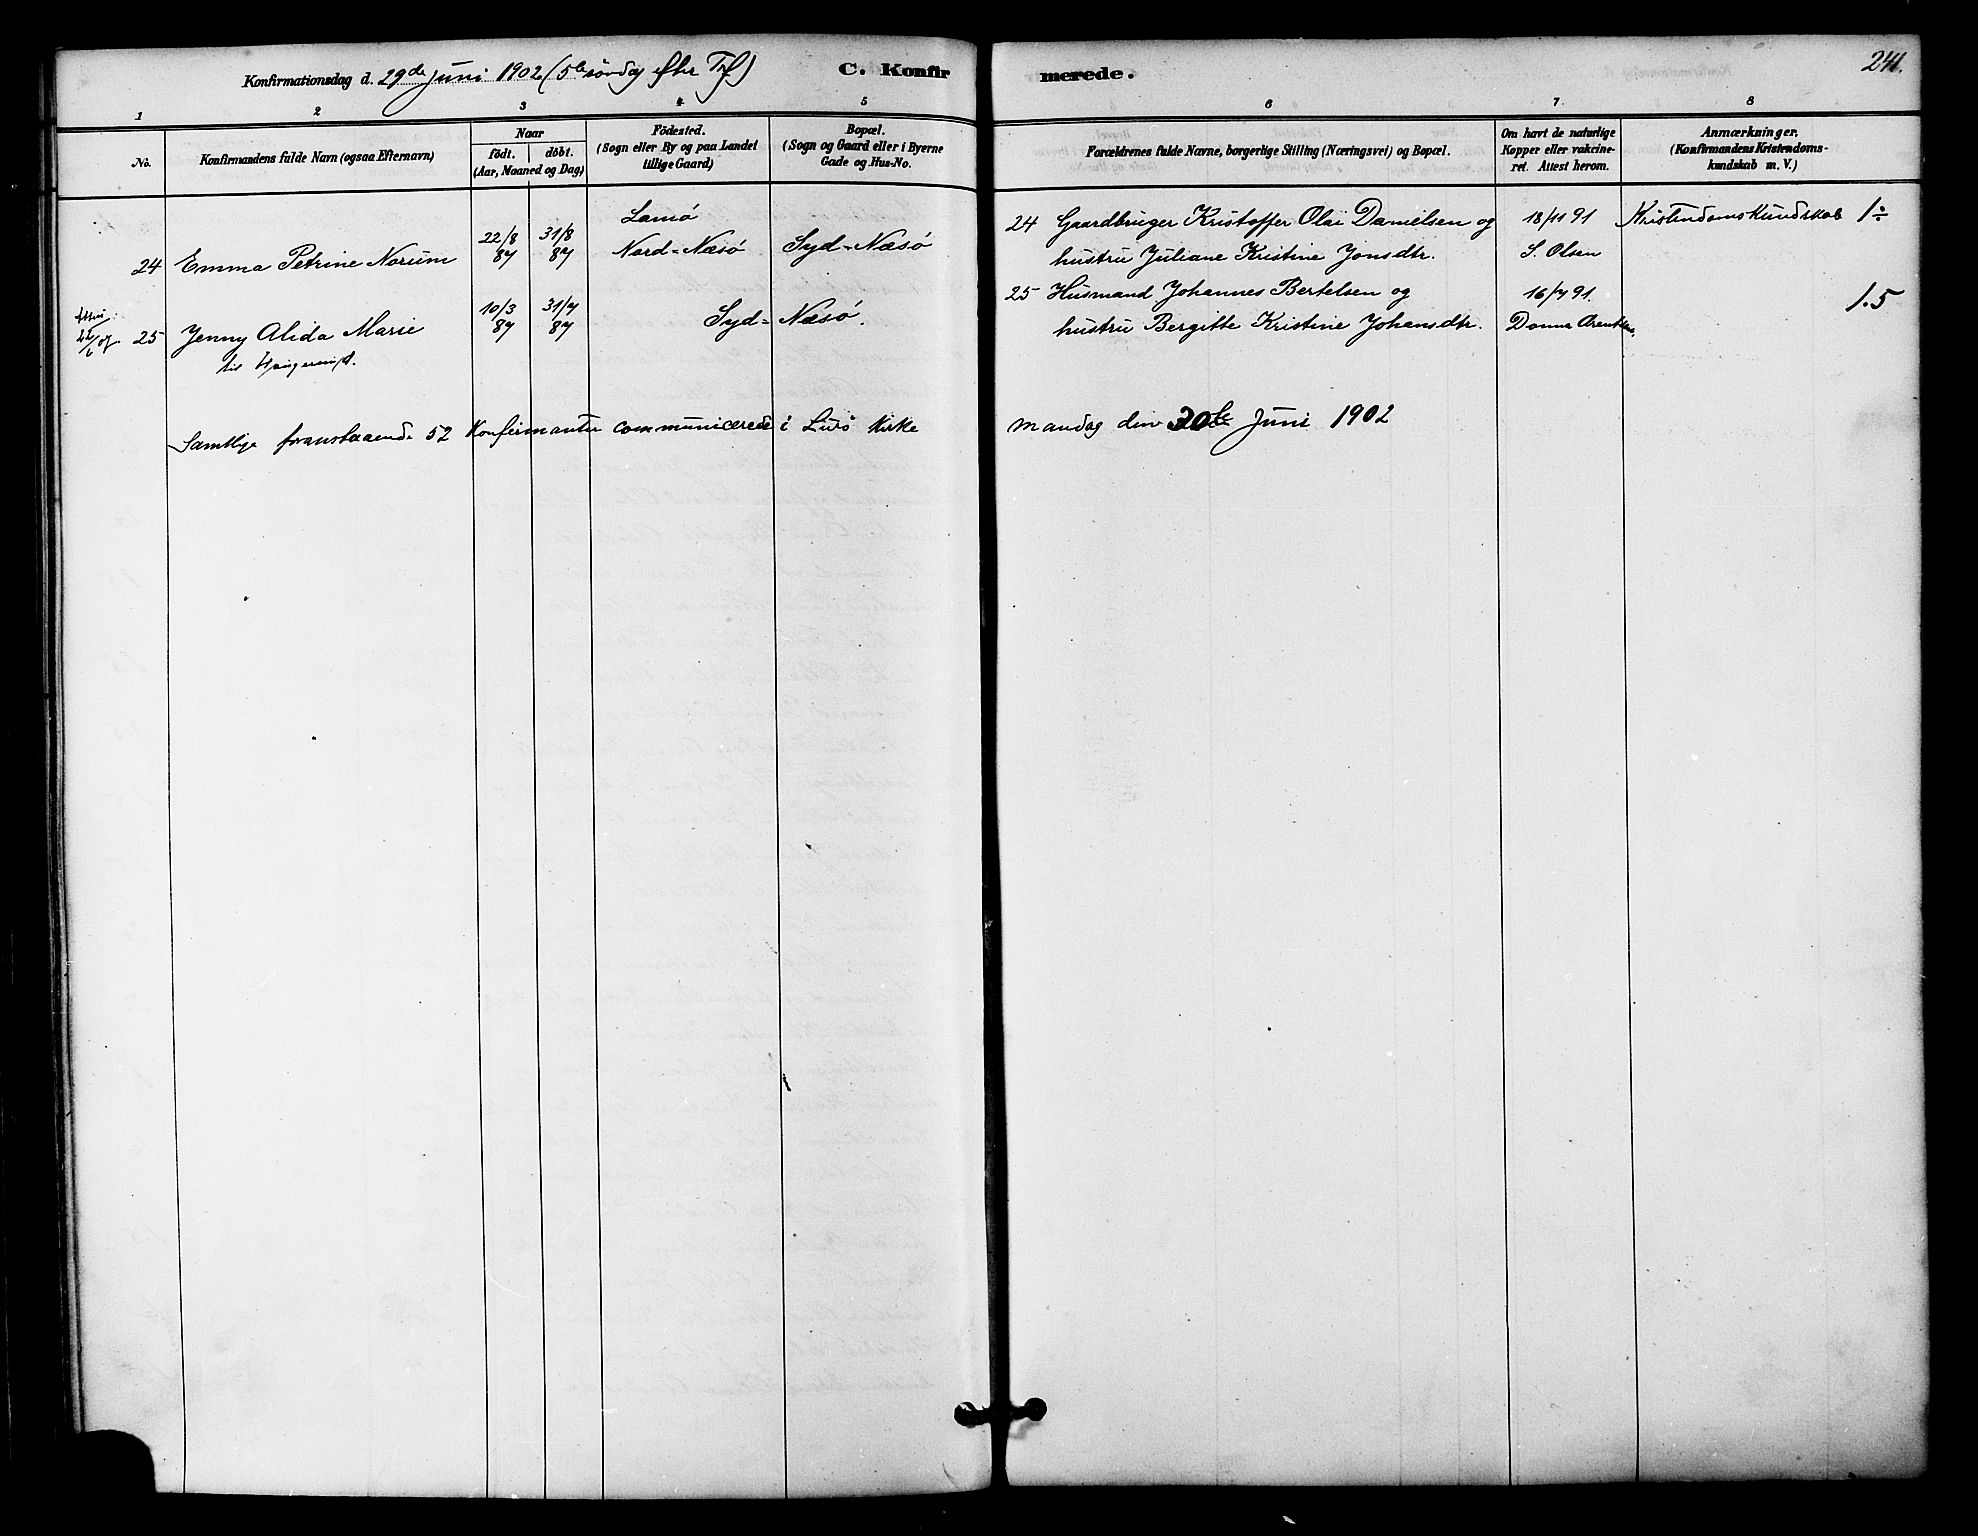 Konfirmationsdag d. 29de Juni 1902 (5te søndag efter Trf)
C. Konfirmerede.
241.
1 2 3 4 5 6 7 8
No.
Konfirmandens fulde Navn (ogsaa Efternavn)
Naar
født. døbt.
(Aar, Maaned og Dag)
Födested.
(Sogn eller By og paa Landet
tillige Gaard)
Bopæl.
(Sogn og Gaard eller i Byerne
Gade og Hus-No.
Forældrenes fulde Navne, borgerlige Stilling (Næringsvei) og Bopæl.
Om havt de naturlige
Kopper eller vakcine-
ret. Attest herom.
Anmærkninger.
(Konfirmandens Kristendoms-
kundskab m. V.)
24 Emma Petrine Norum 22/8 87 31/8 87
Lamø
Nord-Næsø Syd-Næsø
24 Gaardbruger Kristoffer Olai Danielsen og
hustru Juliane Kristine Jonsdtr.
18/11 91
S. Olsen
Kristendomskundskab 1÷
25 Jenny Alida Marie 10/3 87 31/7 87 Syd-Næsø.
til
25 Husmand Johannes Bertelsen og
hustru Bergitte Kristine Johansdtr.
16/7 91
Donna
1.5
Samtlige foranstaaende 52 Konfirmanter communicerede i Lurø Kirke
mandag den 30te Juni 1902